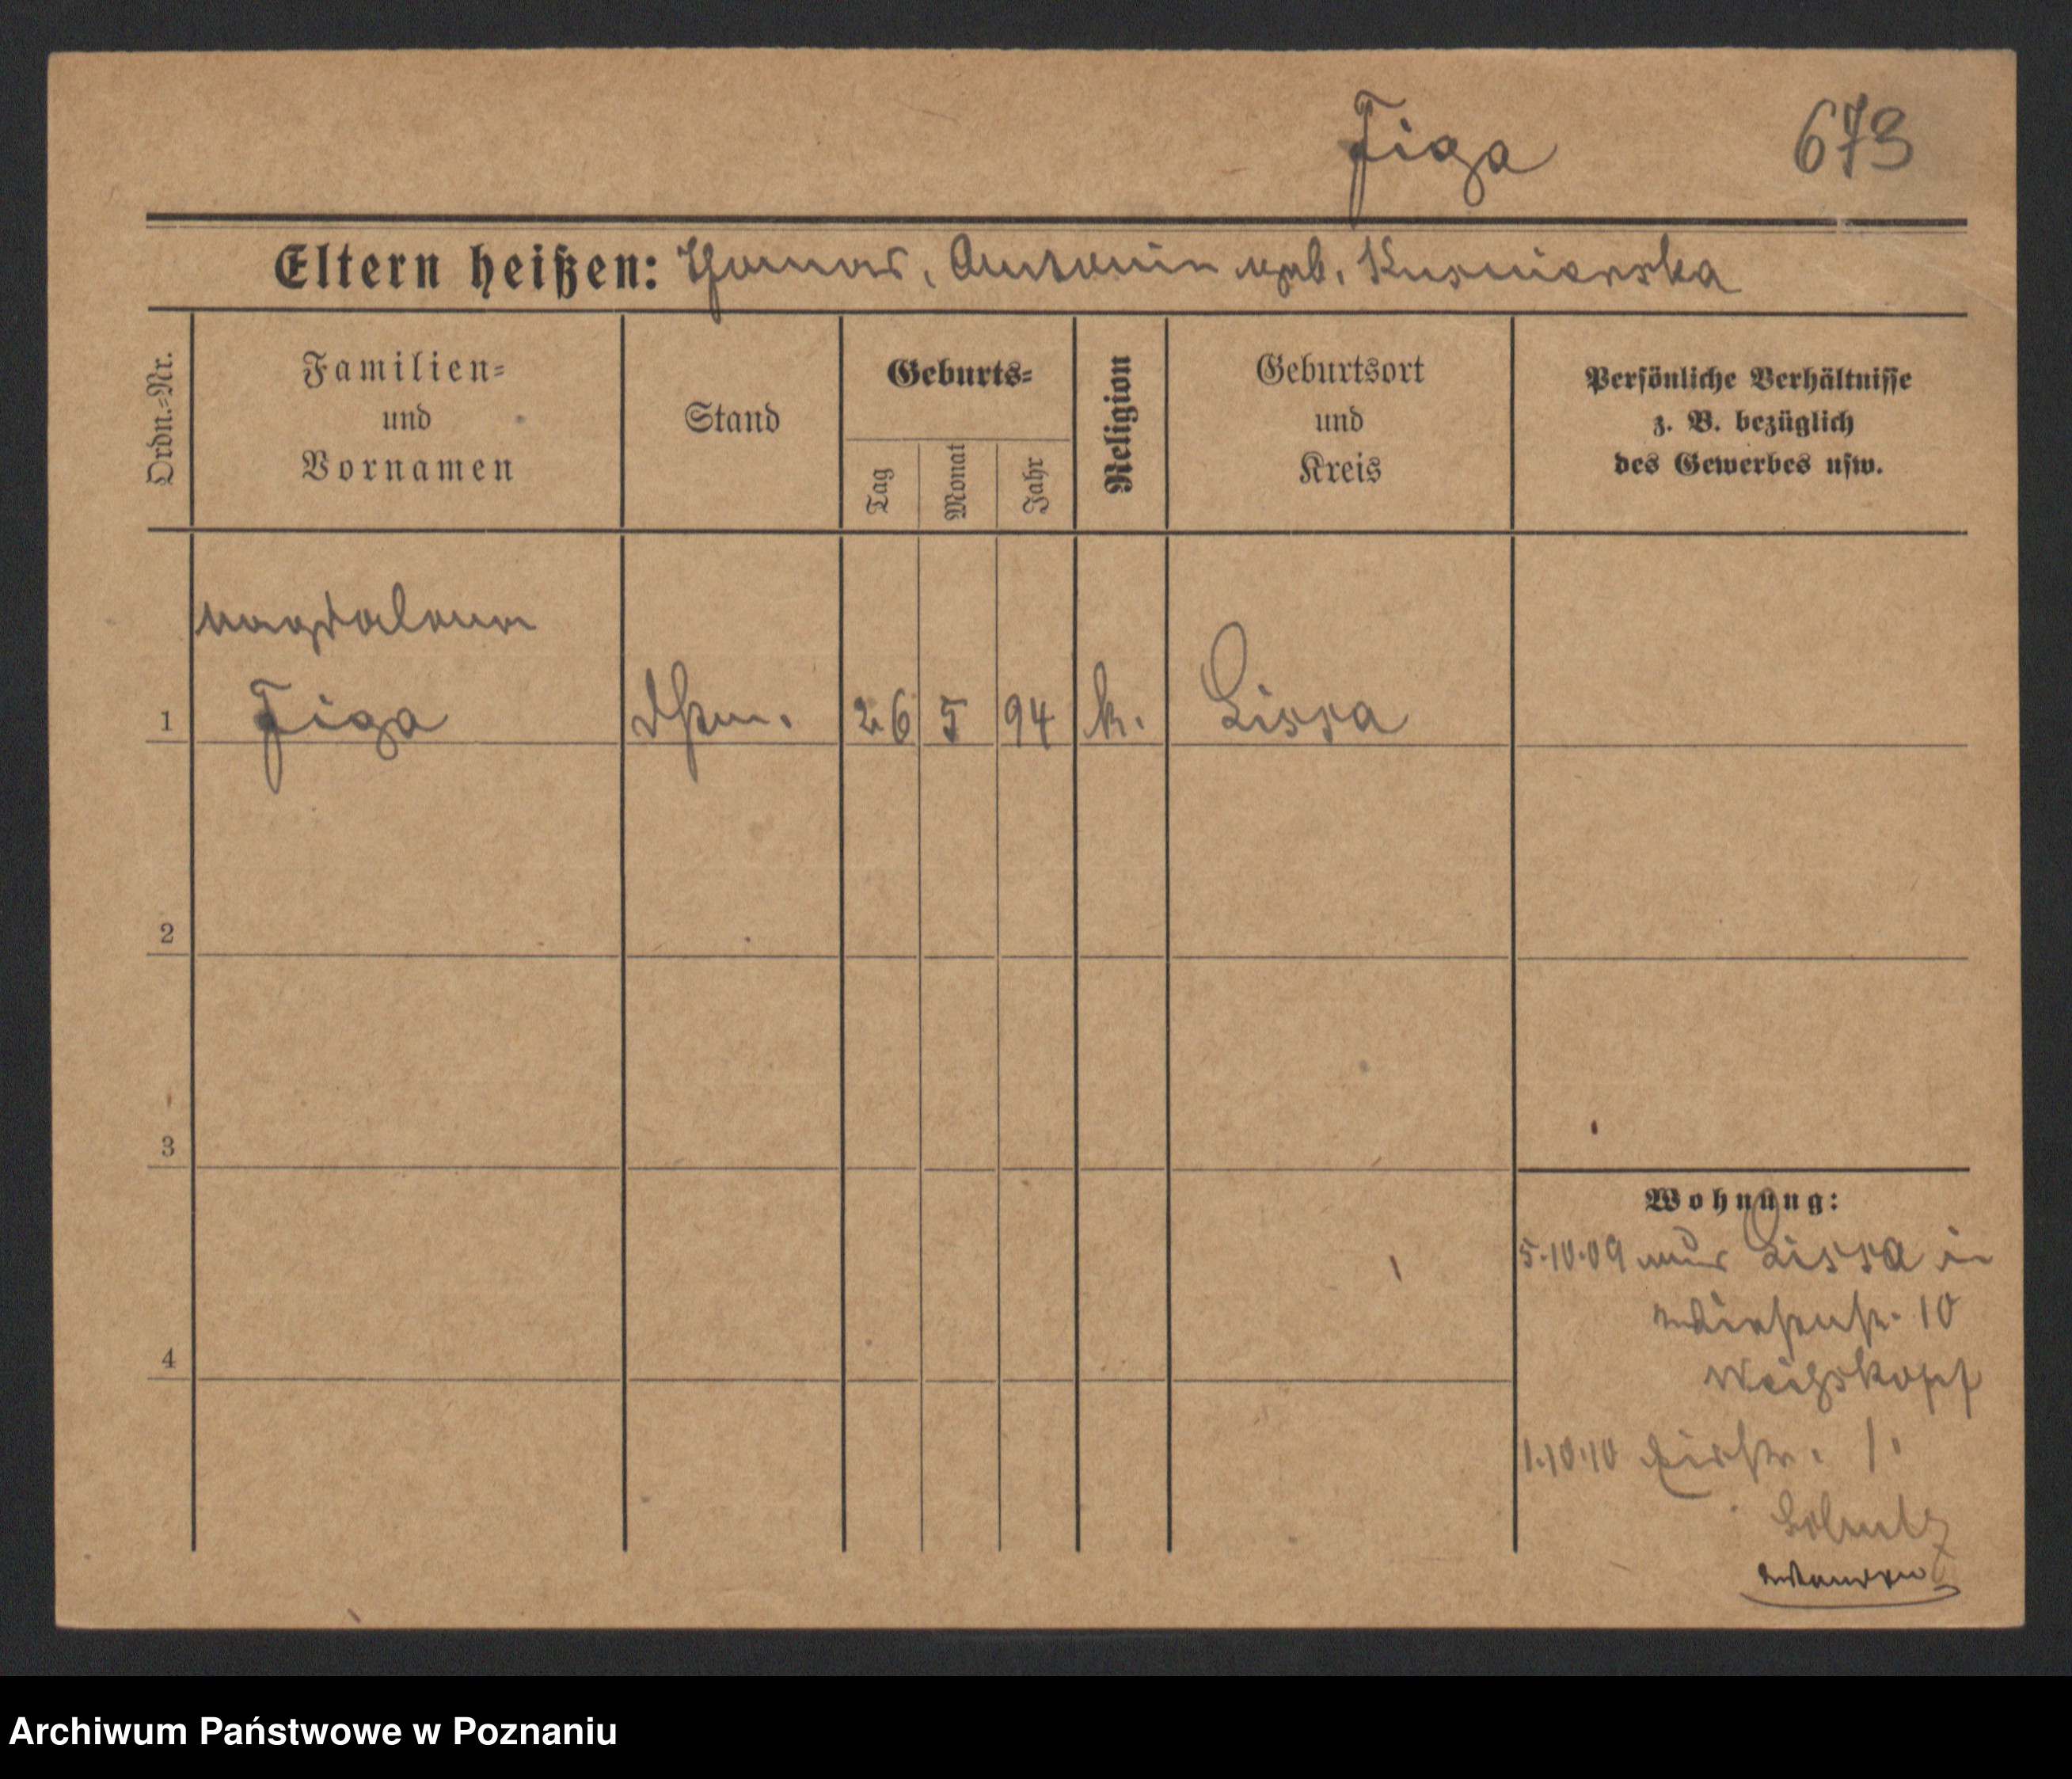 Figa 673
Eltern heißen: Thomas, Antonin geb. Kusmierska
Ordn.-Nr.
Familien-
und
Vornamen
Stand
Geburts-
Tag
Monat
Jahr
Religion
Geburtsort
und
Kreis
Persönliche Verhältnisse
z. B. bezüglich
des Gewerbes usw.
Magdalena
1 Figa 26 5 94 k. Lissa
2
3
4
Wohnung:
5.10.09 aus Lissa in
Wiesenstr. 10
Weihskopf
1.10.10 1.
Archiwum Państwowe w Poznaniu